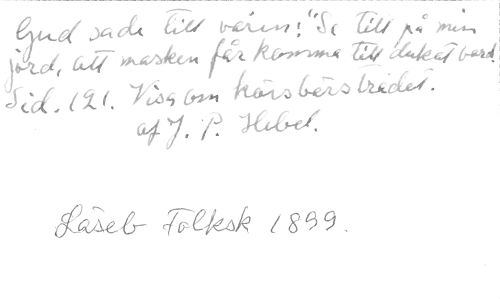 Gud sade till våren: "Se till på min
jord, att masken får komma till dukat bord.
Sid. 121. Visa om körsbärsträdet.
af J. P. Hebel.
Läseb Folksk 1899.